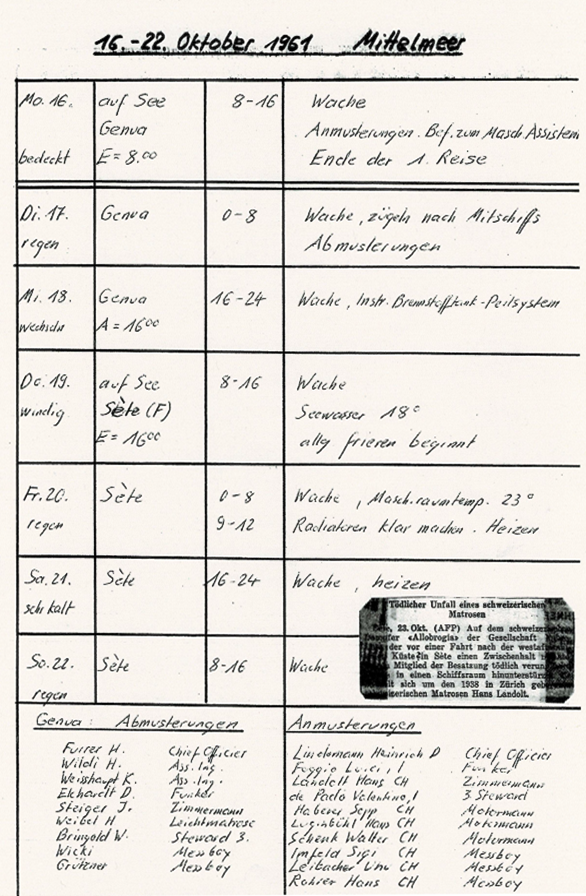 16.-22. Oktober 1961 Mittelmeer
Mo. 16. auf See 8-16 Wache
Genua Anmusterungen. Bef. zum Masch. Assistent
bedeckt E = 8.00 Ende der 1. Reise
Di. 17. Genua 0-8 Wache, zügeln nach Mitschiffs
regen Abmusterungen
Mi. 18. Genua 16-24 Wache, Instr. Brennstofftank-Peilsystem
A = 16⁰⁰
Do. 19. auf See 8-16 Wache
windig Sète (F) Seewasser 18°
E = 16⁰⁰ allg frieren beginnt
Fr. 20. Sète 0-8 Wache, Masch.raumtemp. 23°
regen 9-12 Radiatoren klar machen. Heizen
Sa. 21. Sète 16-24 Wache, heizen
sch kalt
Tödlicher Unfall eines schweizerischen
Matrosen
23. Okt. (AFP) Auf dem schweizer
«Allobrogia» der Gesellschaft
der vor einer Fahrt nach der westafri
Küste in Sète einen Zwischenhalt
Mitglied der Besatzung tödlich verun
in einen Schiffsraum hinunterstürz
sich um den 1938 in Zürich geb
izerischen Matrosen Hans Landolt.
So. 22. Sète 8-16 Wache
regen
Genua: Abmusterungen
Furrer H. Chief Officier
Wildi H. Ass. Ing.
Weisshaupt K. Ass. Ing.
Ekhardt D. Funker
Steiger J. Zimmermann
Weibel H Leichtmatrose
Bringold W. Steward 3.
Wicki Messboy
Grützner Messboy
Anmusterungen
Lindemann Heinrich D Chief Officier
Foggio I Funker
Landolt Hans CH Zimmermann
de Paolo Valentino, I 3 Steward
Haberer Sepp CH Motormann
Luginbühl Hans CH Motormann
Schenk Walter CH Motormann
Imfeld Sigi CH Messboy
Leibacher CH Messboy
Rohrer Hans CH Messboy